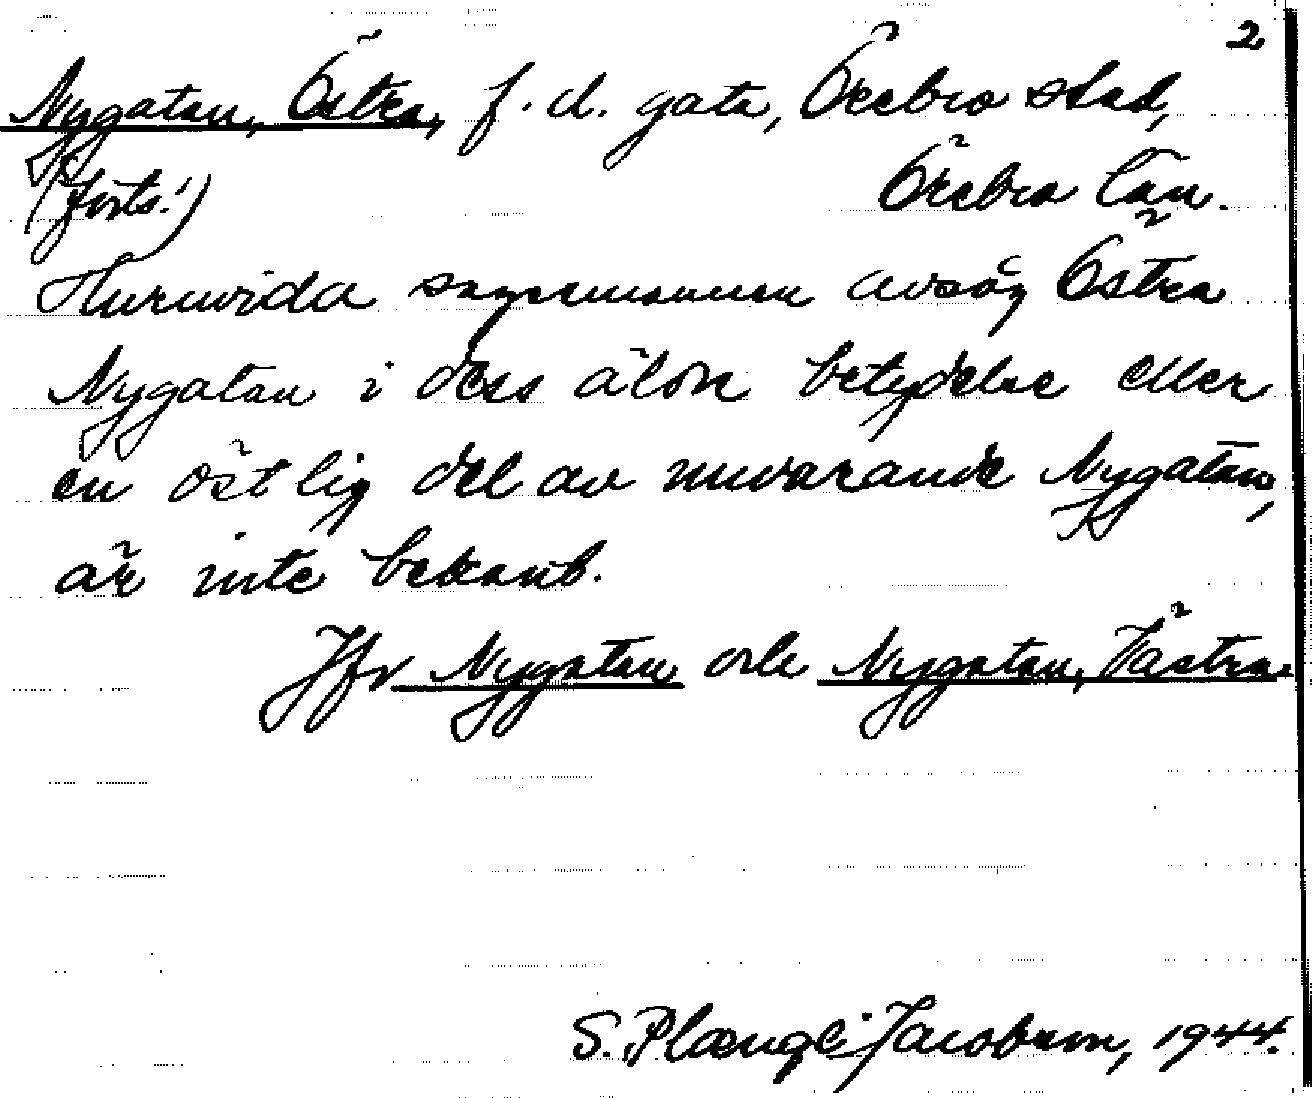 2
Nygatan, Östra, f. d. gata, Örebro stad,
(forts.) Örebro län.
Huruvida sagesmannen avsåg Östra
Nygatan i dess äldre betydelse eller
en östlig del av nuvarande Nygatan,
är inte bekant.
Jfr Nygatan och Nygatan, Västra.
S. Plænge Jacobson, 1944.